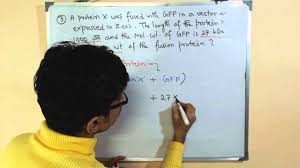 ③ A protein X was fused with GFP in a vector a
expressed to E.coli. The length of the protein
1000 and the mol wt. of GFP is 27 kDa
wt of the fusion protein?
protein
X + GFP)
+ 27